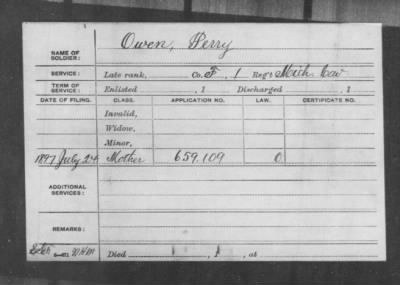 Owen, Perry
NAME OF SOLDIER:
SERVICE: Late rank, Co. F, 1 Reg't Mich. Cav
TERM OF SERVICE: Enlisted , 1 Discharged , 1
DATE OF FILING. CLASS. APPLICATION NO. LAW. CERTIFICATE NO.
Invalid,
Widow,
Minor,
1897 July 24 Mother 659.109 O
ADDITIONAL SERVICES:
REMARKS:
Died , 1 , at